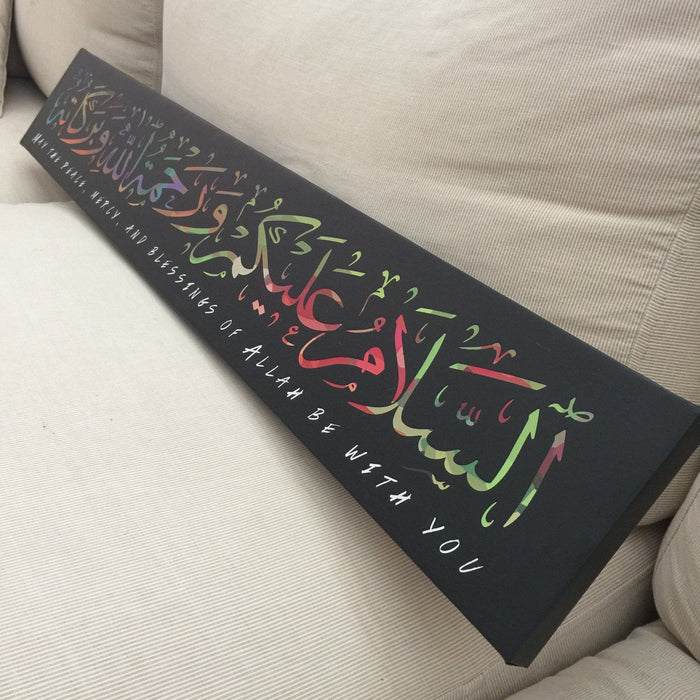 ٱلسَّلَامُ عَلَيْكُمْ وَرَحْمَةُ اللَّهِ وَبَرَكَاتُهُ
MAY THE PEACE, MERCY, AND BLESSINGS OF ALLAH BE WITH YOU